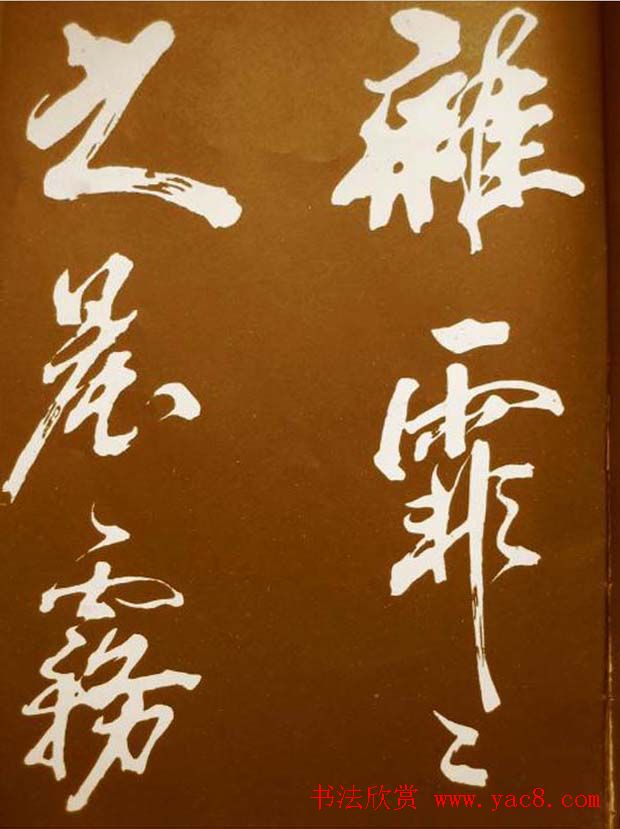 雜霏〻
之晨霧
书法欣赏 www.yac8.com